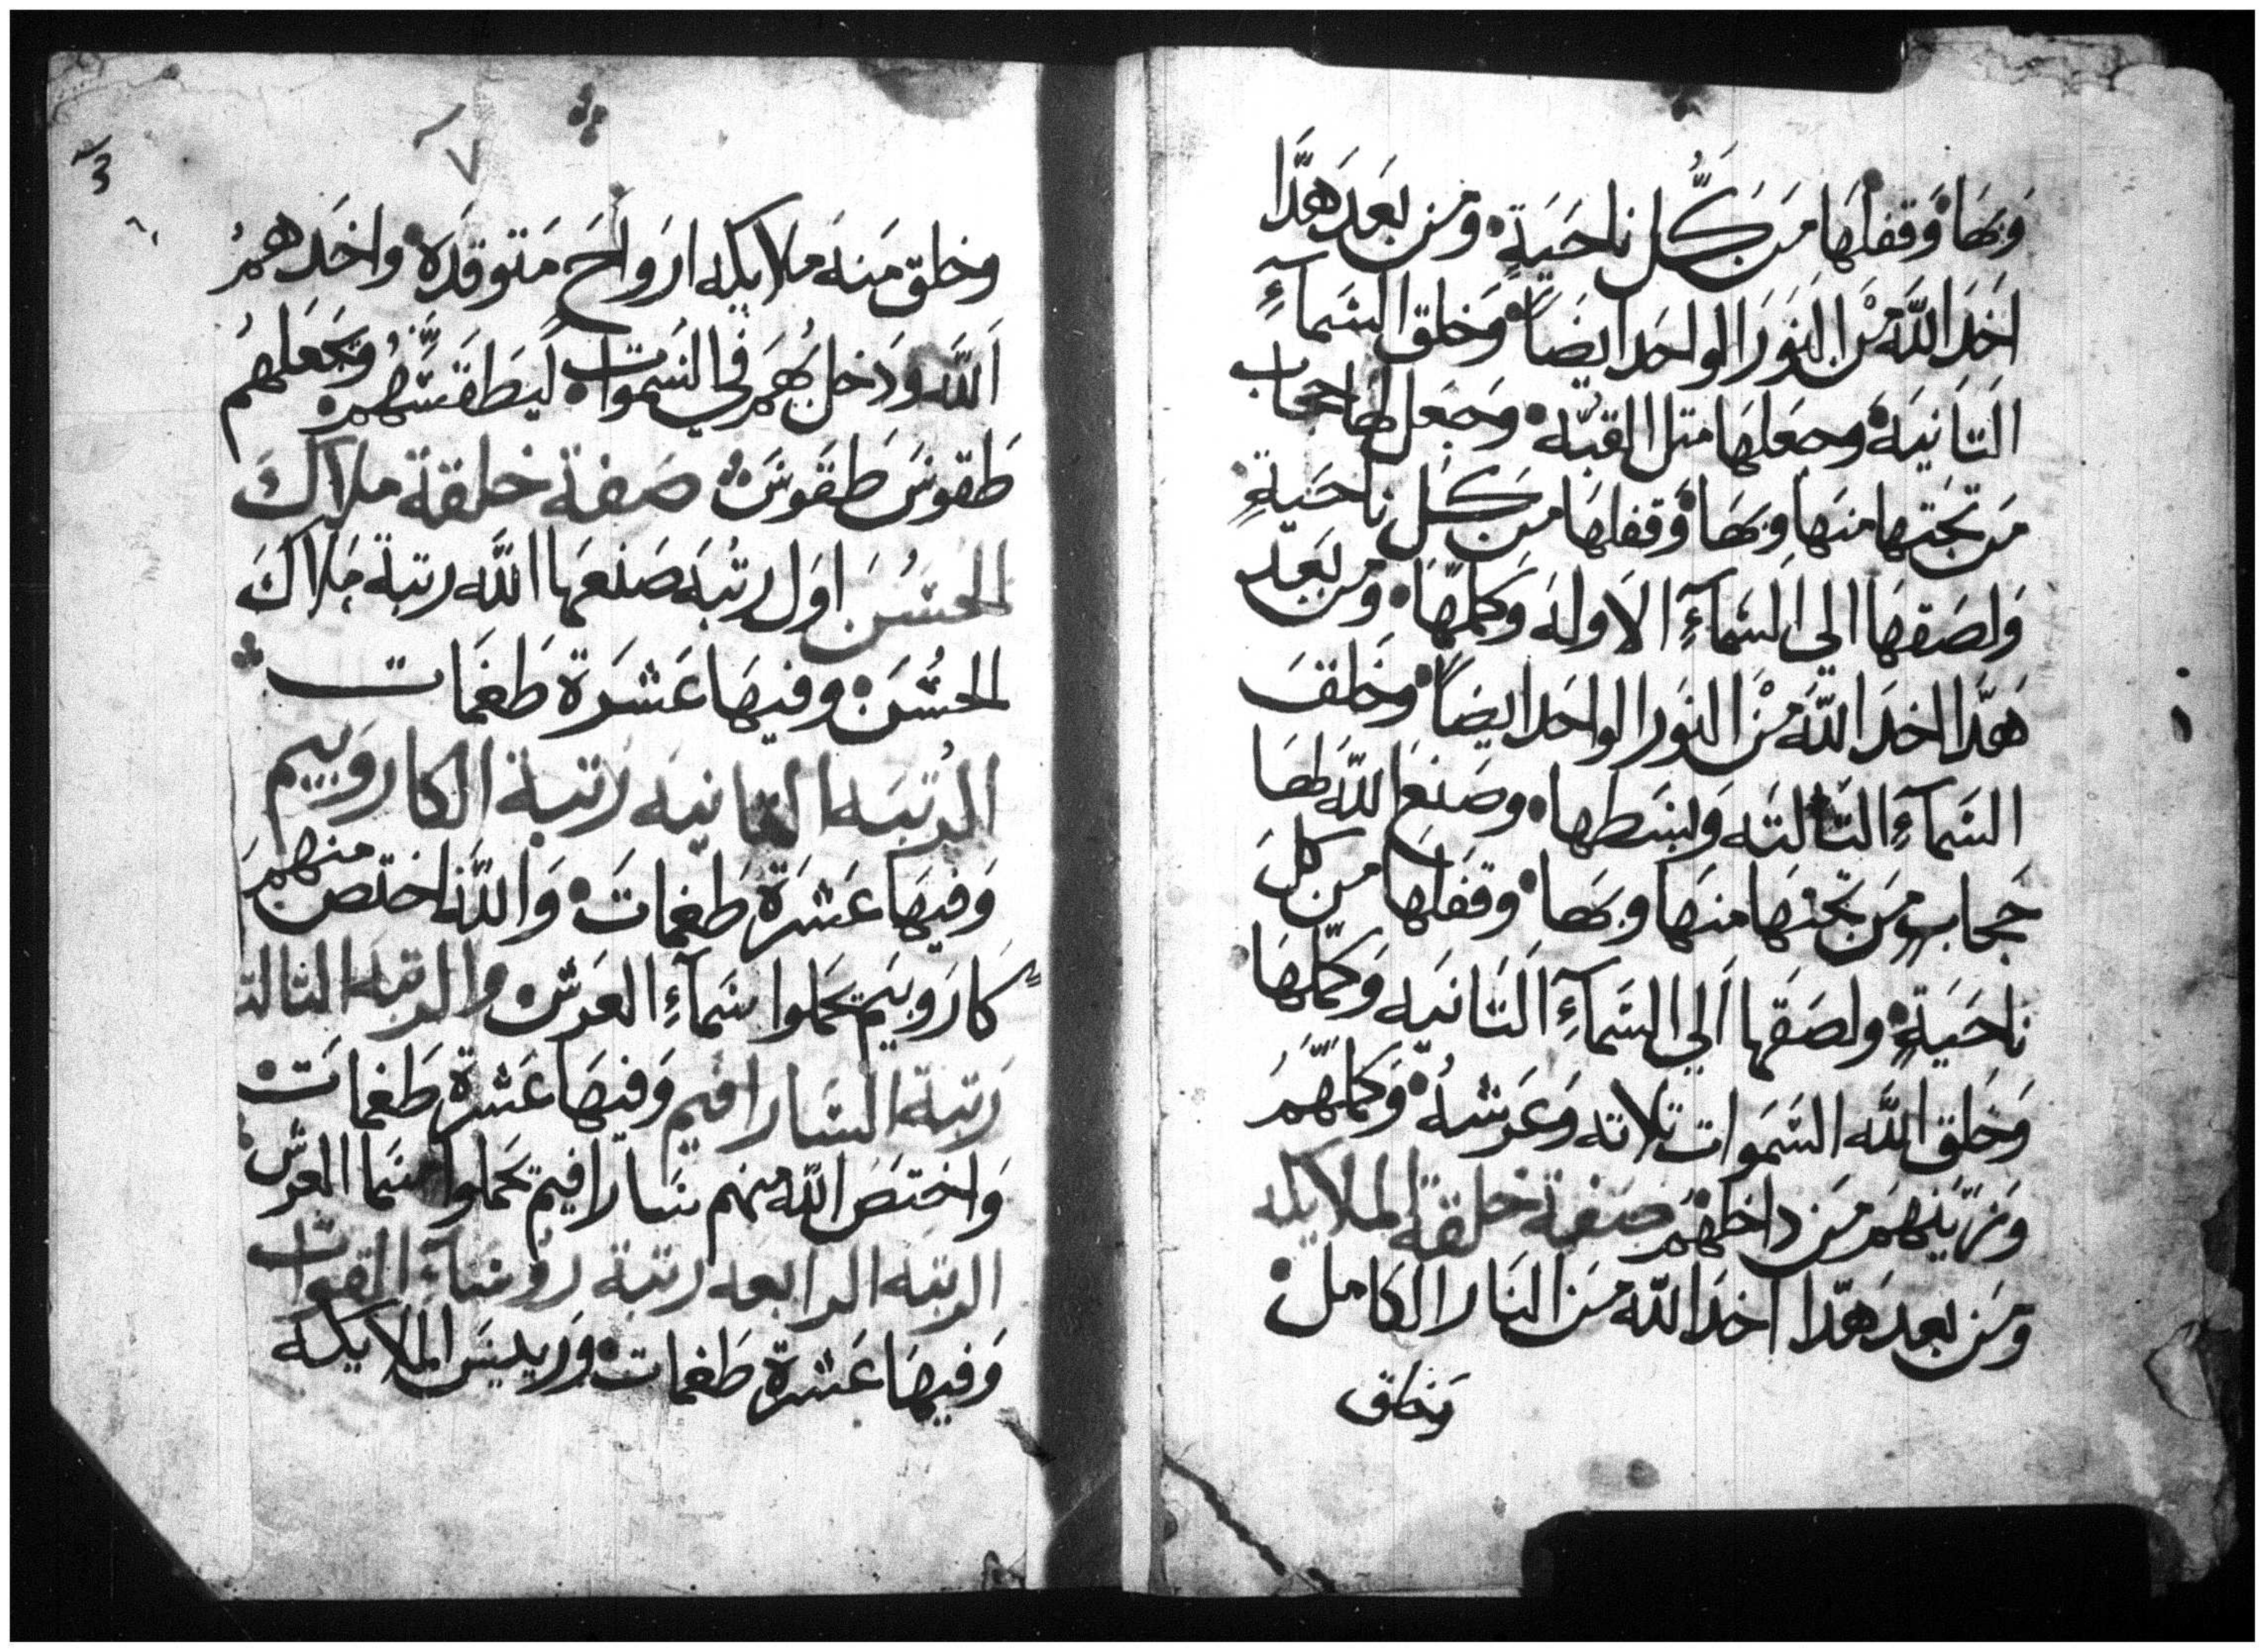 وَبهَا وَقفلهَا مَن كُّل ناحَيَةٍ ومَن بعَد هَدَّا
اخَدَ اللَّه مْن النَوَر الواحَد ايضَاً وَخلق السَمآءِ
التَانيَه وجعَلهَا متل القبّه وَجَعَل لهَا حجَاب
مَن تحَتها منهَا وبهَا وَقفلهَا مَن كَل ناحَيةٍ
وَلصَقهَا الي السَمآءِ الاَوله وَكملّهَا ومَن بَعَد
هَدَّا اخدَ اللَّه مْن النوَر الواحَد ايضَاً وخَلقَ
السَمآءِ التَالتَه وَبسَطها وصَنعَ اللَّه لهَا
حجَابٍ مَن تحَتهَا منهَا وبهَا وقفَلها من كلَ
ناحَيَةٍ ولصَقَها اَلي السَمآءِ التَانيَه وَكمّلهَا
وَخَلق اللَّه السَمَوات تلاته وَعَرشهُ وَكملّهَمُ
وَزيَّنهَم مَن داخلهُم صَفة خلقة الملايكه
ومَن بعدَ هَدّا اخدَ اللَّه مَن النَار الكَامل
وَخلق
وخلق مَنهَ ملايكه اَروَاحَ مَتوقدَة واخَدهمُ
اَللَّه وَدَخل بهُمَ في السَموات ليَطقسّهُمن وَيجَعَلهمُ
طَقوسَ طَقوسَ صَفة خلقة ملاكَ
الحسُنَ اوَل رتُبَه صَنعَها اللَّه رتبة مَلاكَ
الحسُنَ وفيهَا عَشرَة طَغمَات
الرُتبَه التانيَه رَتبة الكاروَبيم
وَفيهَا عَشَرَة طَغمات وَاللَّه اختَص منهمَ
كَاروَبيَم يحمَلوا سَمآءِ العَرش والرتبَه التالته
رَتبة السَارافيم وَفيهَا عَشرة طَغمات
وَاختصَ اللَّه منهم سَارافيم يحَملوا سَما العرَش
الرتبَه الرابعه رتبة روُسآءِ القوات
وَفيهَا عَشرة طَغمات وَرييسَ الملايكه